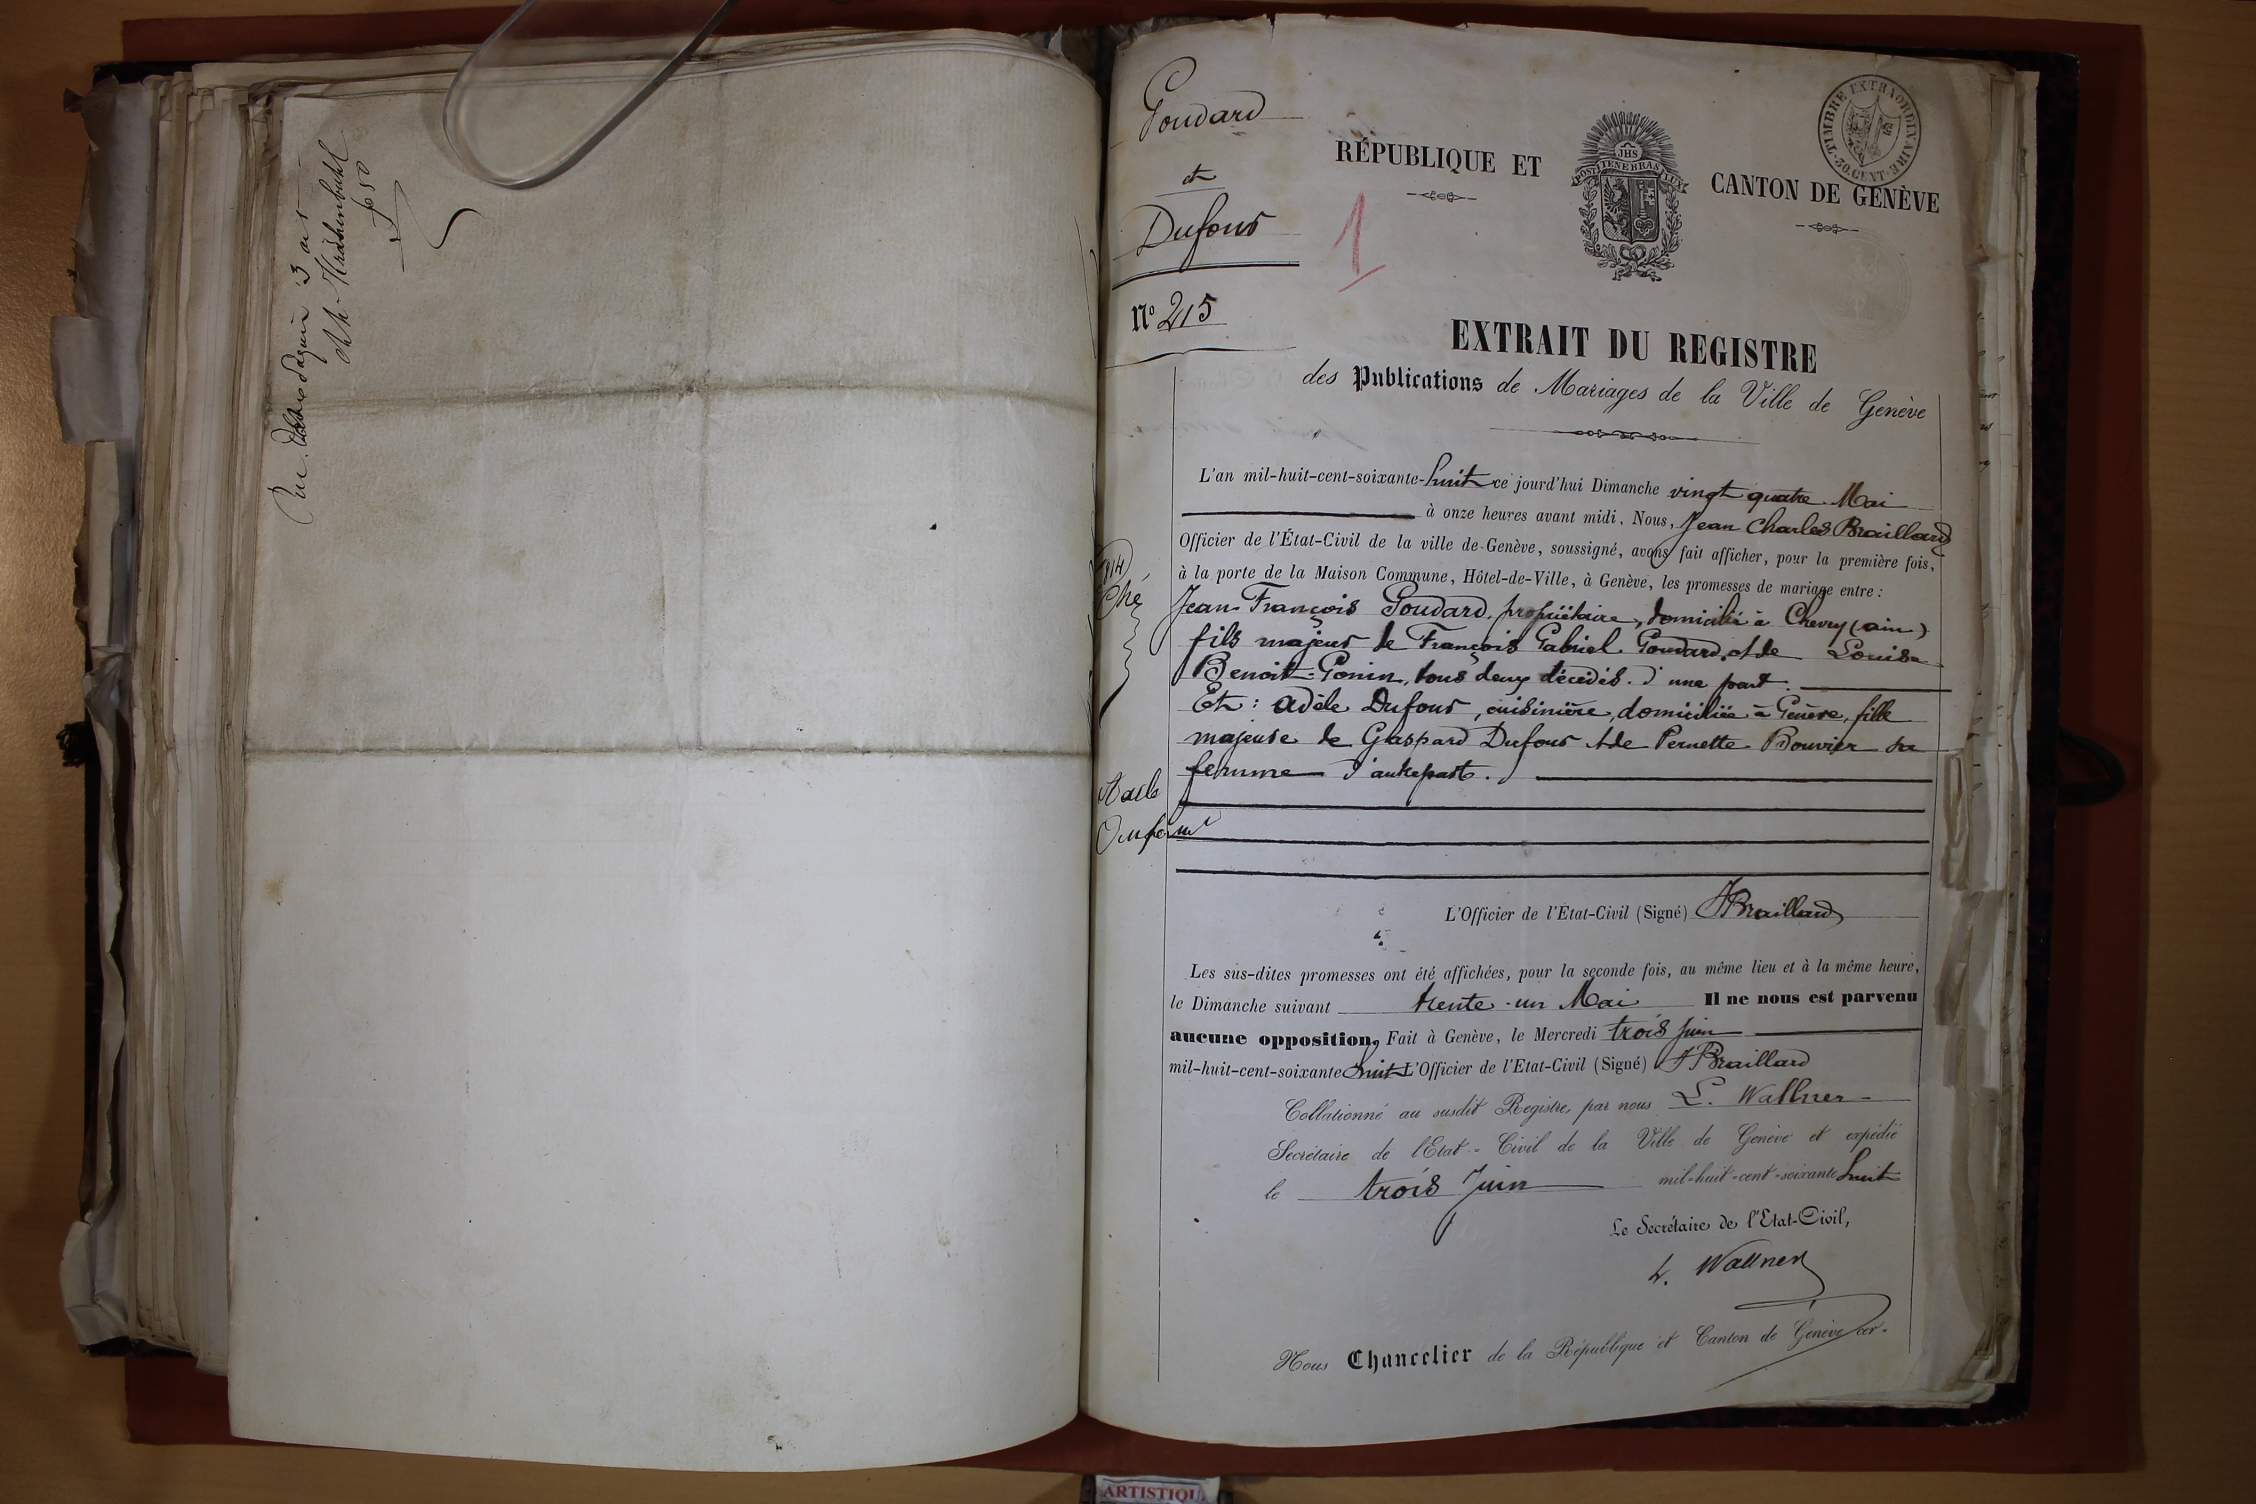 3 oct
Krähenbuhl
f 50
Goudard
et
Dufour
No 215
1
RÉPUBLIQUE ET CANTON DE GENÈVE
JHS
POST TENEBRAS LUX
TIMBRE EXTRAORDINAIRE
EXTRAIT DU REGISTRE
des Publications de Mariages de la Ville de Genève
L'an mil-huit-cent-soixante-huit ce jourd'hui Dimanche vingt quatre Mai
à onze heures avant midi, Nous, Jean Charles Braillard
Officier de l'État-Civil de la ville de Genève, soussigné, avons fait afficher, pour la première fois,
à la porte de la Maison Commune, Hôtel-de-Ville, à Genève, les promesses de mariage entre :
Jean-François Goudard, propriétaire, domicilié à Chevry (ain)
fils majeur de François Gabriel Goudard, et de Louise
Benoit-Gonin, tous deux décédés. d'une part.
Et : Adèle Dufour, cuisinière, domiciliée à Genève, fille
majeure de Gaspard Dufour et de Pernette Bouvier sa
femme d'autre part.
Ché
Dufour
L'Officier de l'État-Civil (Signé) J Braillard
Les sus-dites promesses ont été affichées, pour la seconde fois, au même lieu et à la même heure,
le Dimanche suivant trente-un Mai Il ne nous est parvenu
aucune opposition, Fait à Genève, le Mercredi trois Juin
mil-huit-cent-soixante huit L'Officier de l'Etat-Civil (Signé) J Braillard
Collationné au susdit Registre, par nous L. Wallner
Secrétaire de l'Etat-Civil de la Ville de Genève et expédié
le trois Juin mil-huit-cent-soixante huit
Le Secrétaire de l'Etat-Civil,
L. Wallner
Nous Chancelier de la République et Canton de Genève cer-
ARTISTIQU